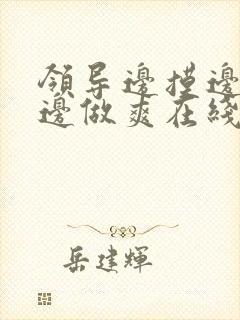 領导邊摸邊
邊做爽在綫
岳建輝